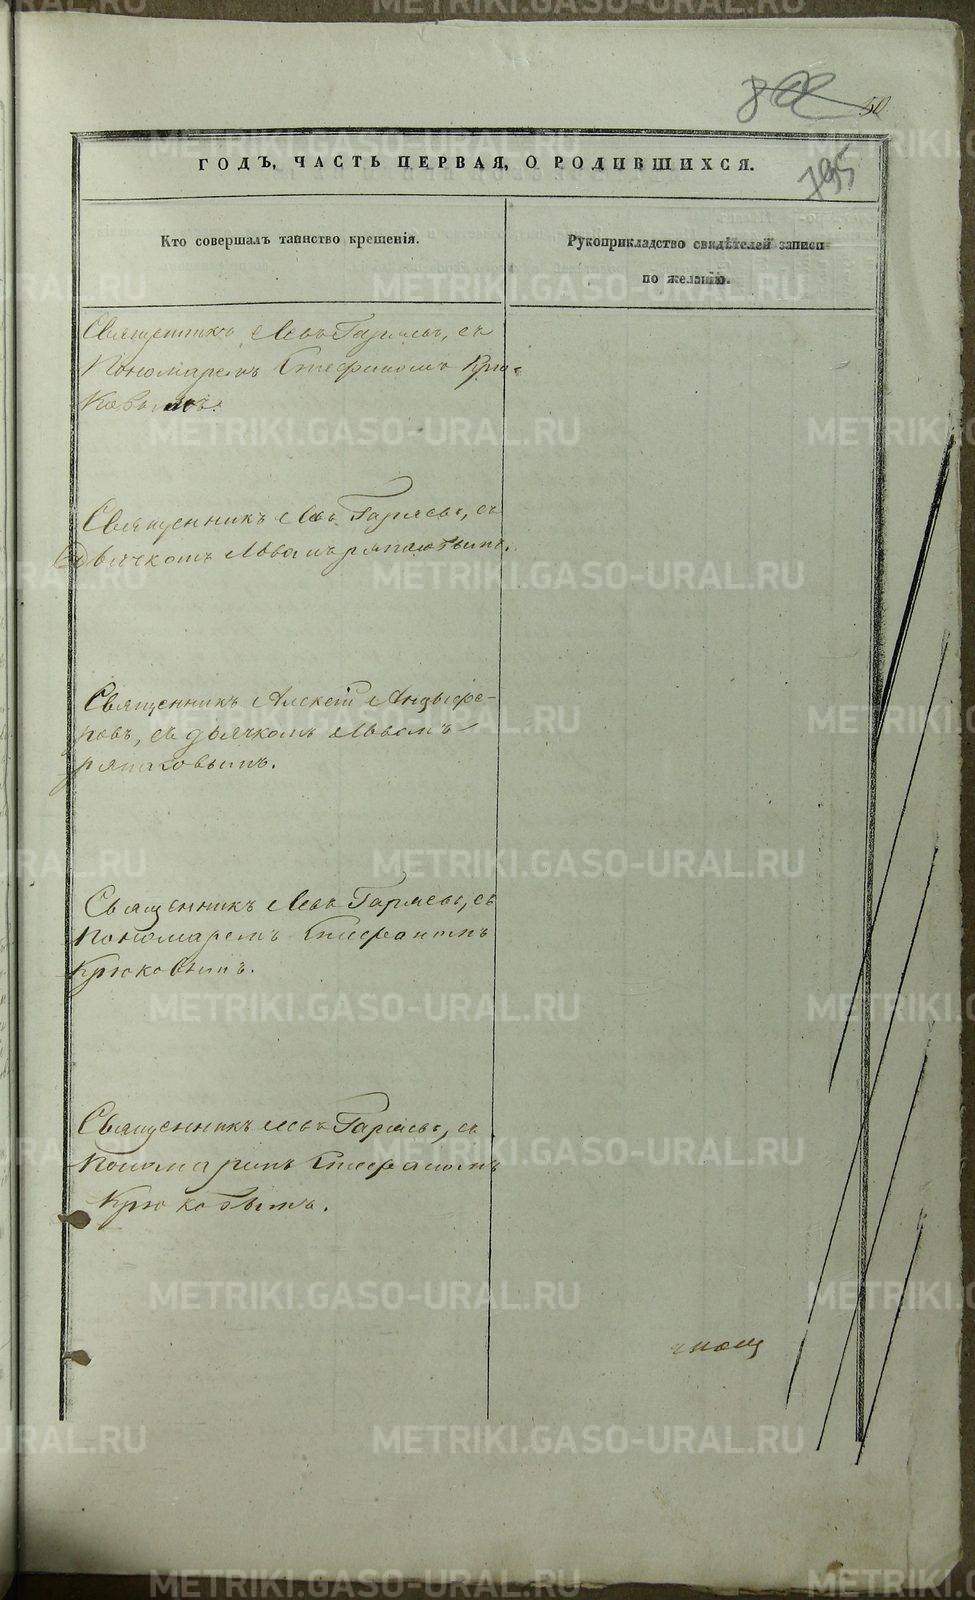 50
795
ГОДЪ, ЧАСТЬ ПЕРВАЯ, О РОДИВШИХСЯ.
Кто совершалъ таинство крещенія.
Рукоприкладство свидѣтелей записи
по желанію.
Священникъ Левъ Гаряевъ, съ
Пономаремъ Стефаномъ Крю-
ковымъ.
Священникъ Левъ Гаряевъ, съ
Дьячкомъ Львомъ
Священникъ Алексій Анцыфе-
ровъ, съ дьячкомъ Львомъ
Священникъ Левъ Гаряевъ, съ
Пономаремъ Стефаномъ
Крюковымъ.
Священникъ Левъ Гаряевъ, съ
Пономаремъ Стефаномъ
Крюковымъ.
METRIKI.GASO-URAL.RU